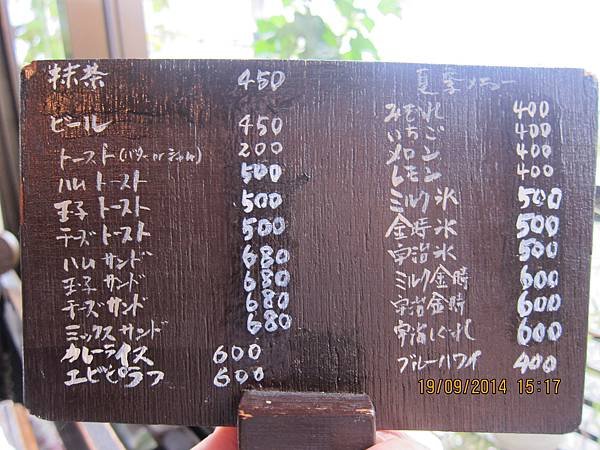 抹茶 450
ビール 450
トースト(バター or ジャム) 200
ハムトースト 500
玉子トースト 500
チーズトースト 500
ハムサンド 680
玉子サンド 680
チーズサンド 680
ミックスサンド 680
カレーライス 600
エビピラフ 600
夏季メニュー
みぞれ 400
いちご 400
メロン 400
レモン 400
ミルク氷 500
金時氷 500
宇治氷 500
ミルク金時 600
宇治金時 600
宇治しぐれ 600
ブルーハワイ 400
19/09/2014 15:17